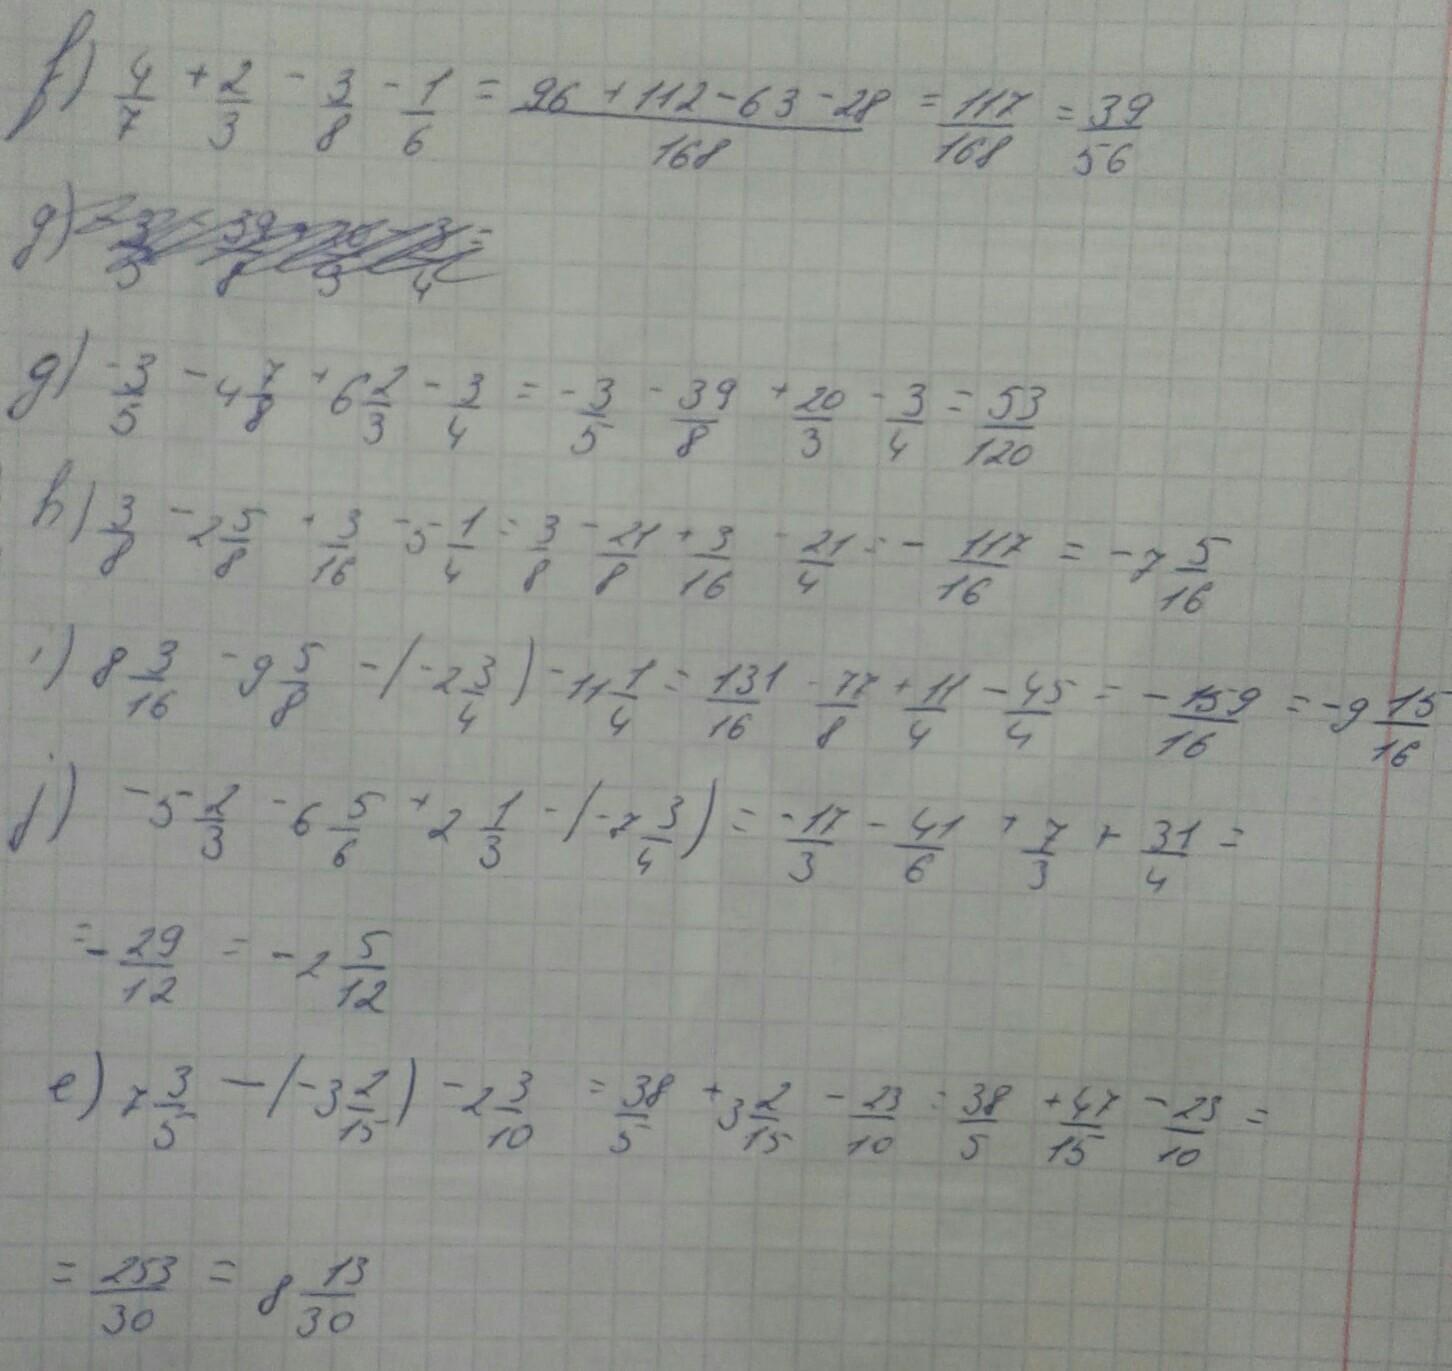 f) 4/7 + 2/3 - 3/8 - 1/6 = (96 + 112 - 63 - 28)/168 = 117/168 = 39/56
g)
g) -3/5 - 4 7/8 + 6 2/3 - 3/4 = -3/5 - 39/8 + 20/3 - 3/4 = 53/120
h) 3/8 - 2 5/8 + 3/16 - 5 1/4 = 3/8 - 21/8 + 3/16 - 21/4 = - 117/16 = -7 5/16
i) 8 3/16 - 9 5/8 - (-2 3/4) - 11 1/4 = 131/16 - 77/8 + 11/4 - 45/4 = - 159/16 = -9 15/16
j) -5 2/3 - 6 5/6 + 2 1/3 - (-7 3/4) = -17/3 - 41/6 + 7/3 + 31/4 =
= - 29/12 = -2 5/12
e) 7 3/5 - (-3 2/15) - 2 3/10 = 38/5 + 3 2/15 - 23/10 = 38/5 + 47/15 - 23/10 =
= 253/30 = 8 13/30